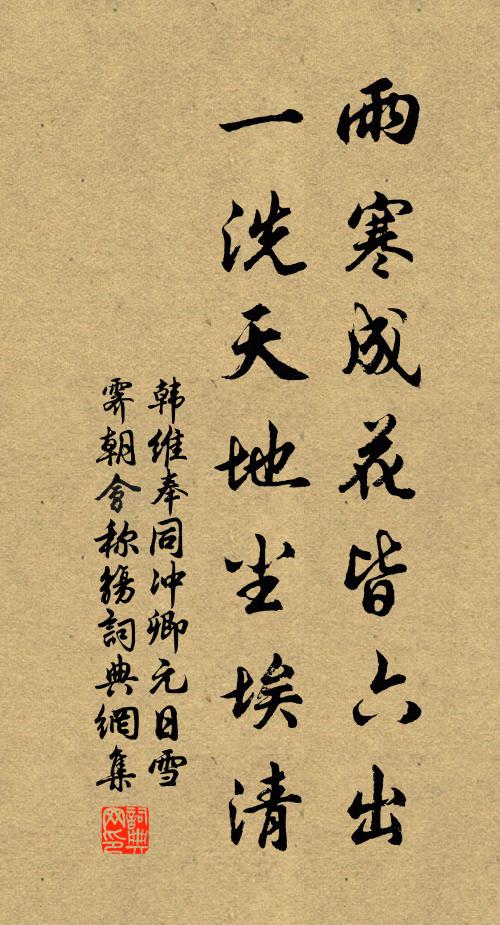 雨寒成花皆六出
一洗天地尘埃清
韩维奉同冲卿元日雪
霁朝會称觴詞典網集
詞典网印